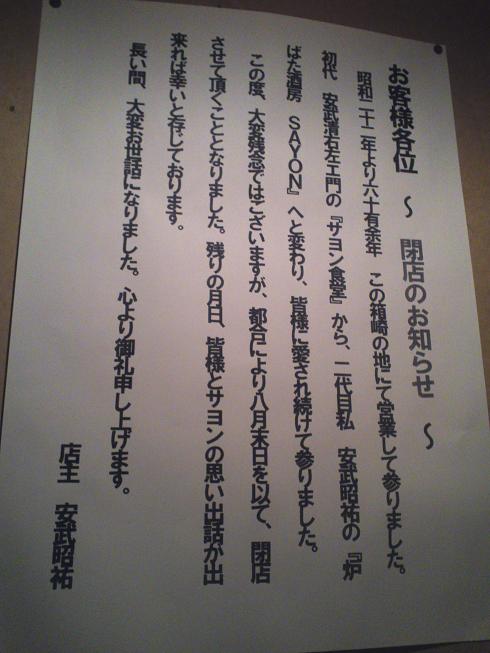 お客様各位 ～ 閉店のお知らせ ～
昭和二十二年より六十有余年 この箱崎の地にて営業して参りました。
初代 安武清右左エ門の『ザヨン食堂』から、二代目私 安武昭祐の『炉
ばた酒房 SAYON』へと変わり、皆様に愛され続けて参りました。
この度、大変残念ではございますが、都合により八月末日を以て、閉店
させて頂くこととなりました。残りの月日、皆様とサヨンの思い出話が出
来れば幸いと存じております。
長い間、大変お世話になりました。心より御礼申し上げます。
店主 安武昭祐